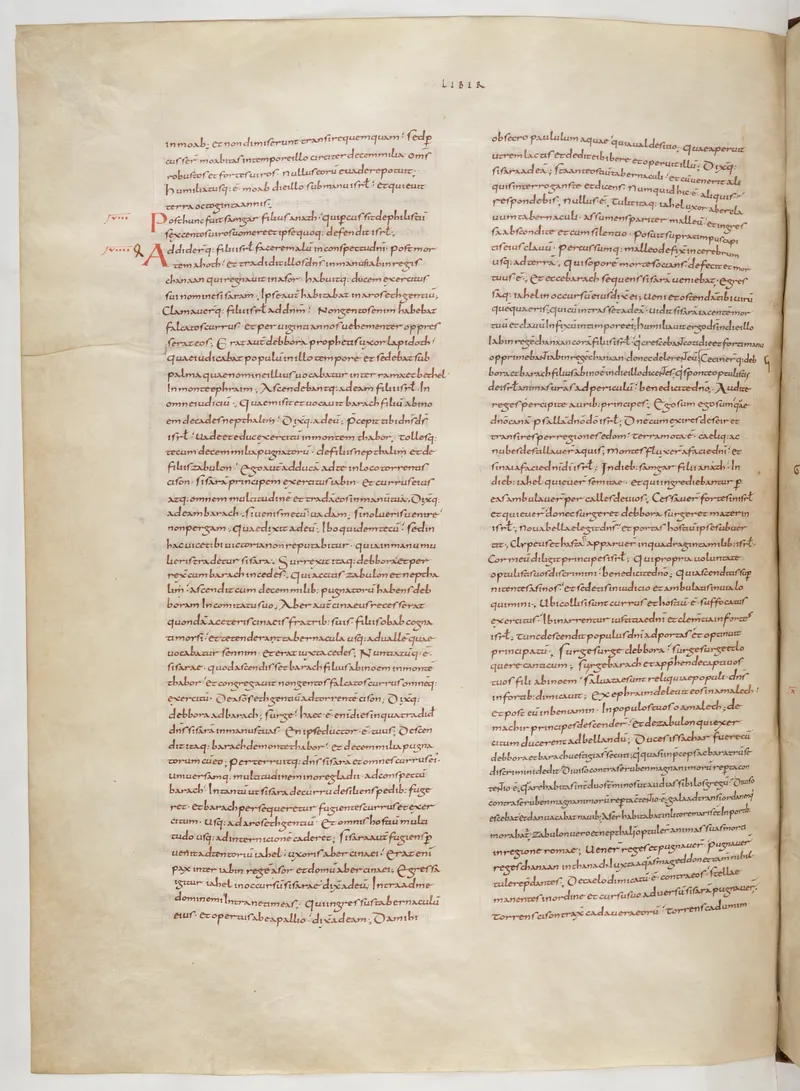 LIBER
in moab; et non dimiserunt transire quemquam; sed p
cusser̄ moabitas in tempore illo circiter decem milia. om̄s
robustos et fortes uiros. nullus eorū euadere potuit;
humiliatusq; ē moab die illo sub manu isrl̄. et quieuit
terra octoginta annis;
XVIII
Post hunc fuit samgar filius anath. qui pcussit de philistiī
sexcentos uiros uomere. et ipse quoq; defendit isrl̄;
XVIIII
Addiderq; filii isrl̄ facere malū in conspectu dn̄i. post mor
tem ahoth. et tradidit illos dn̄s in manus iabin regis
chanaan qui regnauit in asor. habuitq; ducem exercitus
sui nomine sisaram; Ipse aut̄ habitabat in aroseth gentiū;
Clamauerq; filii isrl̄ ad dn̄m; Nongentos enim habebat
falcatos currus. et per uiginti annos uehementer oppres
serat eos; Erat aut̄ debbora prophetis uxor lapidoth
quae iudicabat populū in illo tempore. et sedebat sub
palma quae nomine illius uocabatur inter rama et bethel
In monte ephraim; Ascendebantq; ad eam filii isrl̄ In
omne iudiciū; Quae misit et uocauit barach filiū abino
em de cades nepthalim; Dixitq; ad eū; p̄cepit tibi dn̄s d̄s
isrl̄. Uade et educ exercitū in montem thabor. tollesq;
tecum decem milia pugnatorū de filiis nepthalim et de
filiis zabulon; Ego aut̄ adducā ad te in loco torrentis
cison. sisarā principem exercitus iabin. et currus eius
atq; omnem multitudinē. et tradā eos in manu tua; Dixitq;
ad eam barach. si uenis mecū uadam; si nolueris uenire
non pergam; Quae dixit ad eū; Ibo quidem tecū. sed in
hac uice tibi uictoria non reputabitur. quia in manu mu
lieris tradetur sisara; Surrexit itaq; debbora et per
rexit cum barach in cedes; Qui accitis zabulon et neptha
lim ascendit cum decem milib; pugnatorū habens deb
boram In comitatu suo; Aber aut̄ cinaeus recesserat
quondā a ceteris cinaeis fratrib; suis. filiis obab cogna
ti mosi. et tetenderat tabernacula usq; ad uallē quae
uocatur sennim. et erat iuxta cedes; Nuntiatūq; ē
sisarae quod ascendisset barach filius abinoem in montē
thabor. et congregauit nongentos falcatos currus omnēq;
exercitū. De aroseth gentiū ad torrentē cison; Dixitq;
debbora ad barach; surge. haec ē enī dies in qua tradid̄
dn̄s sisarā in manus tuas. En ipse ductor ē tuus; Descen
dit itaq; barach de monte thabor. et decem milia pugna
torum cū eo; perterruitq; dn̄s sisarā et omnes currus ei
uniuersamq; multitudinem in ore gladii. ad conspectū
barach. In tantū ut sisara de curru desiliens pedib; fuge
ret. et barach persequeretur fugientes currus et exer
citum. usq; ad aroseth gentiū; Et omnis hostiū multi
tudo usq; ad internicionē caderet; sisara aut̄ fugiens p
uenit ad tentoriū iahel. uxoris aber cinaei. Erat enī
pax inter iabin regē asor et domū aber cinaei; Egressa
igitur iahel in occursū sisarae. dixit ad eū; Intra ad me
domine mi Intra ne timeas; Qui ingressus tabernaculū
eius. et opertus ab ea pallio. dixit ad eam; Da mihi
obsecro paululum aquae. quia ualde sitio; Quae aperuit
utrem lactis et dedit ei bibere. et operuit illū; Dixitq;
sisara ad eā; sta ante ostiū tabernaculi. et cū uenerit ali
quis interrogans te et dicens. Numquid hic ē aliquis.
respondebis. nullus ē; Tulit itaq; iahel uxor aber cla
uum tabernaculi. assumens pariter malleū. et ingres
sa abscondite et cum silentio. posuit supra timpus capi
tis eius clauū. percussumq; malleo defixit in cerebrum
usq; ad terrā; Qui soporē morte socians defecit et mor
tuus ē; Et ecce barach sequens sisarā ueniebat. Egres
saq; iahel in occursū eius dixit ei; ueni et ostendā tibi uirū
quē quaeris; qui cū intrasset ad eā. uidit sisarā iacente mor
tuū et clauū Infixū in tempore ei; humiliauit ergo d̄s in die illo
Iabin regē chanaan corā filiis isrl̄. q; crescebant cotidie et forti manu
opprimebant iabin regē chanaan donec delerent eū; Cecinerq; deb
bora et barach filius abinoē in die illo dicentes; qui sponte optulistis
de isrl̄ animas uras ad periculū. benedicite dn̄o; Audite
reges percipite aurib; principes; Ego sum ego sum quae
dn̄o canā psallā dn̄o dō isrl̄; Dn̄e cum exires de seir et
transires per regiones edom. terra mota ē. caeliq; ac
nubes destillauer̄ aquis; montes fluxer̄ a facie dn̄i. et
sinai a facie dn̄i dī isrl̄; In dieb; samgar filii anath. In
dieb; iahel quieuer̄ semitae. et qui ingrediebantur p
eas ambulauer̄ per calles deuios; Cessauer̄ fortes in isrl̄
et quieuer̄ donec surgeret debbora surgeret mater in
isrl̄; Noua bella elegit dn̄s et portas hostiū ipse subuer
tit; Clypeus et hasta si apparuer̄ in quadraginta milib; isrl̄;
Cor meū diligit principes isrl̄; Qui propria uoluntate
optulistis uos discrimini benedicite dn̄o; Qui ascenditis sup
nitentes asinos. et sedetis in iudicio et ambulatis in uia
loquimini; Ubi collisi sunt currus et hostiū ē suffocatus
exercitus. Ibi narrentur iustitiae dn̄i et clementia in fortes
isrl̄; tunc descendit populus dn̄i ad portas et optinuit
principatū; surge surge debbora. surge surge et lo
quere canticum; surge barach et apphende captiuos
tuos fili abinoem; saluatae sunt reliquiae populi. dn̄s
in fortib; dimicauit; Ex ephraim deleuit eos in amalech;
et post eū in beniamin. In populos tuos o amalech; de
machir principes descender̄. et de zabulon qui exer
citum ducerent ad bellandū; Duces issachar fuere cū
debbora et barach uestigia st̄ secuti;
discrimini dedit; Diuiso contra se ruben magnanimorū repta ē con
tentio ē; quare habitas int̄ duos t̄minos ut audias sibilos gregū; Diuiso
contra se ruben magnanimorū repta ē contentio ē; galaad trans iordanem
quiescebat et dan uacabat nauib; Aser habitabat in litore maris et In portib;
morabat; zabulon uero et nepthali optuler̄ animas suas morti
in regione rome; Uener̄ reges et pugnauer̄. pugnauer̄
reges chanaan in thanach Iuxta aquas mageddo. et tam̄ nihil
tulere pdantes; De caelo dimicatū ē contra eos. stellae
manentes in ordine et cursu suo aduersū sisarā pugnauer̄;
Torrens cison traxit cadauera eorū. Torrens cadumim